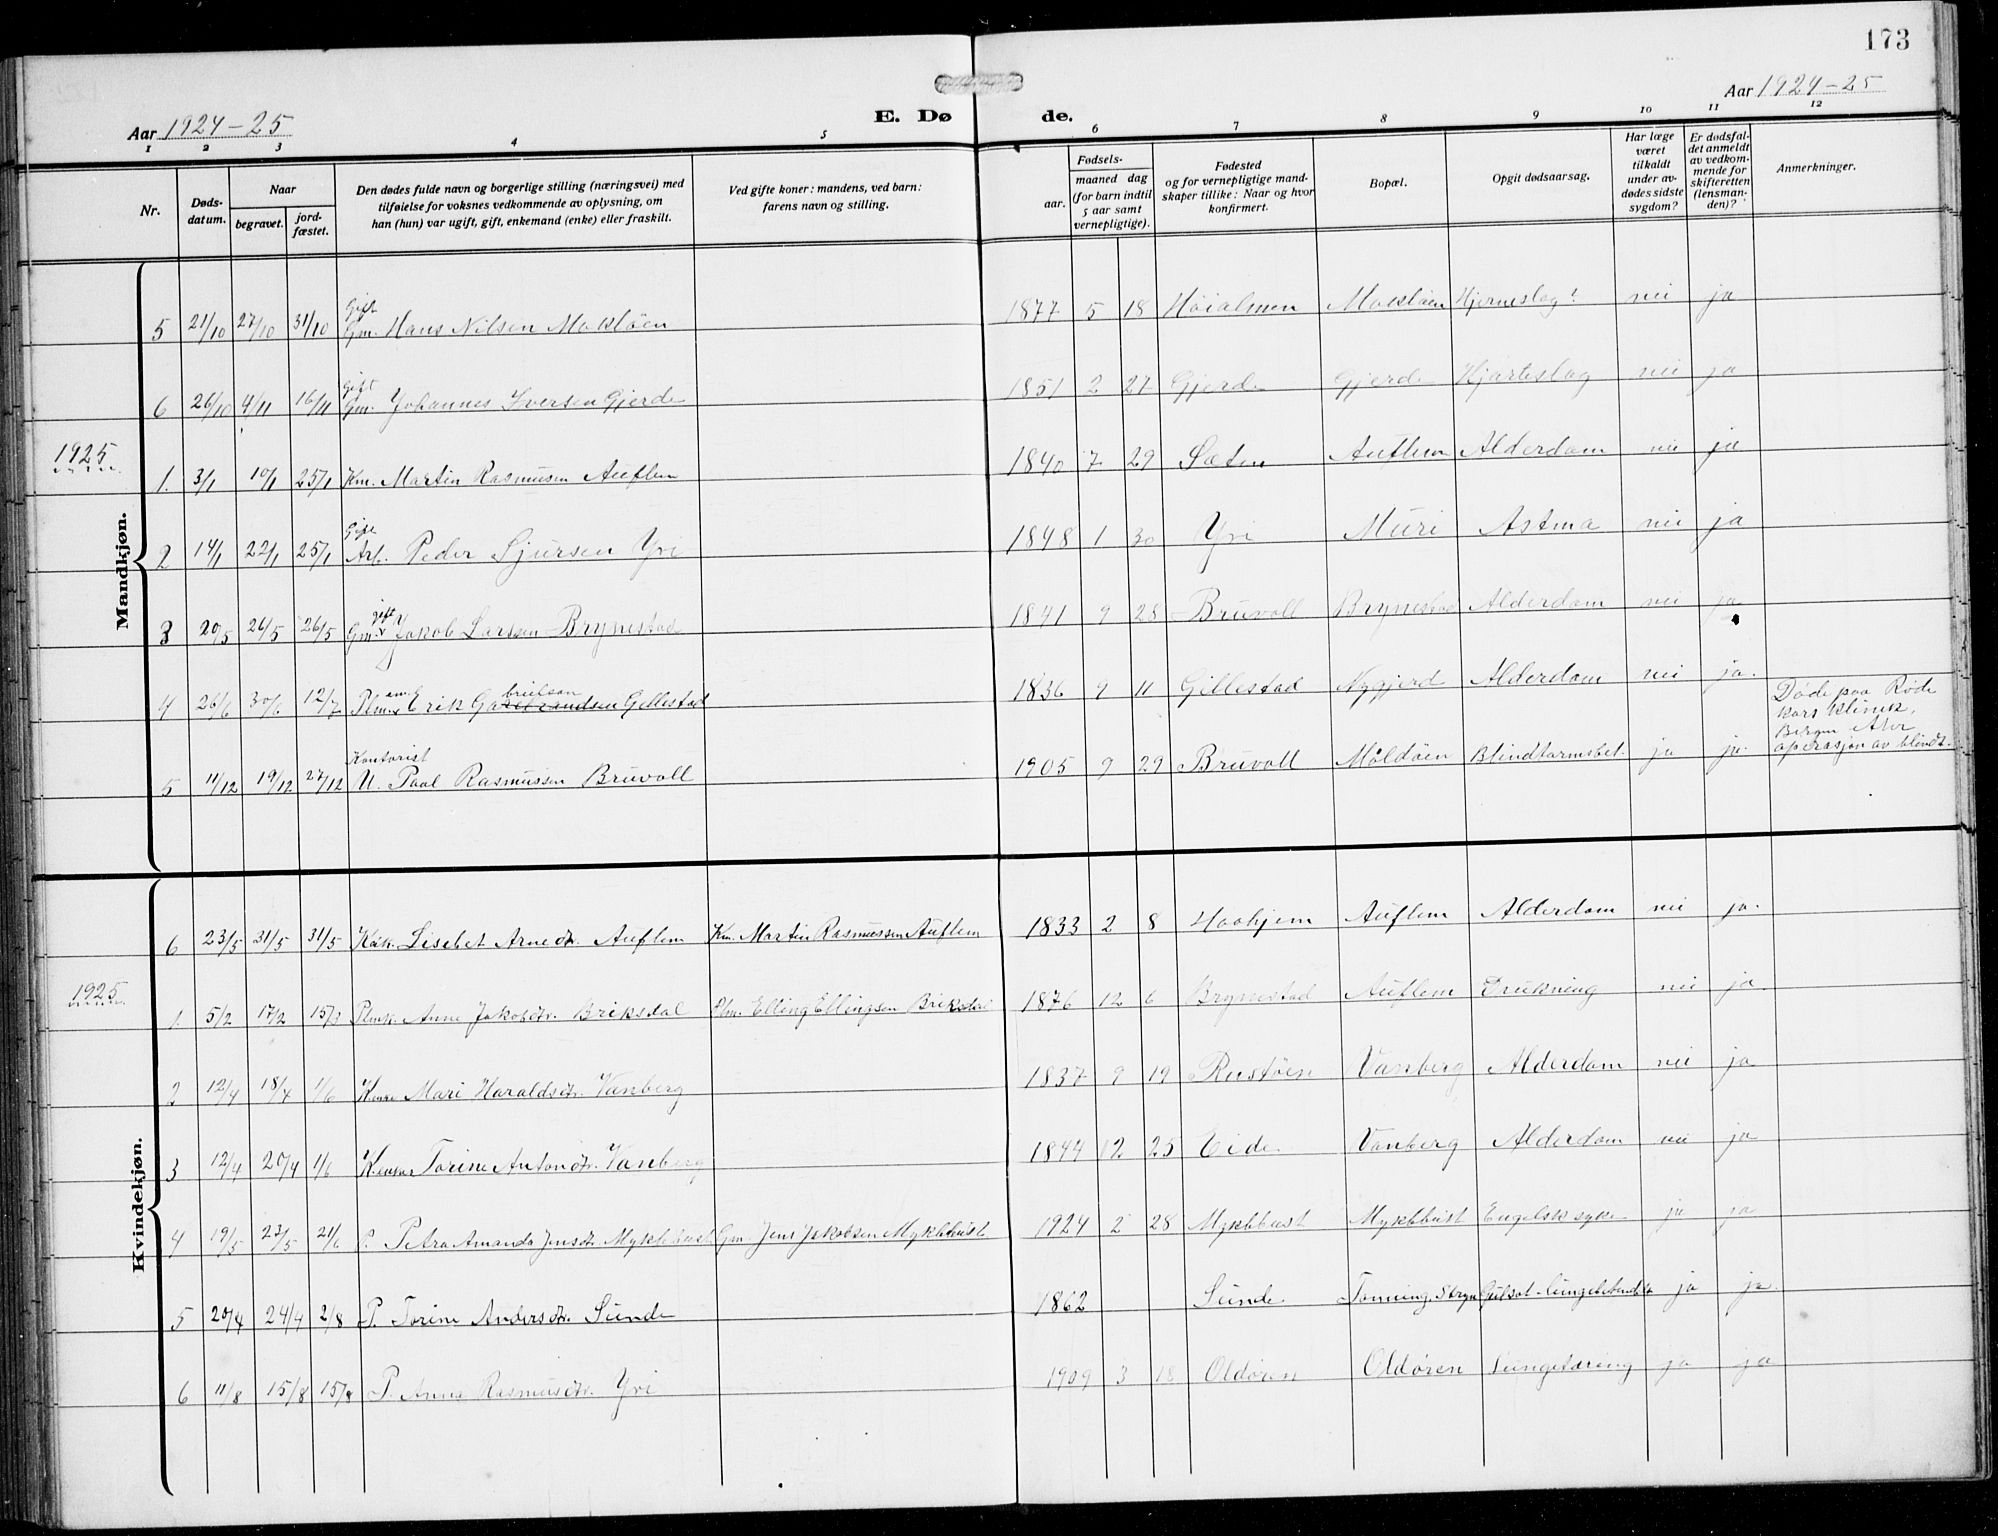 173
Aar 1924-25
E. Døde.
Aar 1924-25
1 2 3 4 5 6 7 8 9 10 11 12
Nr.
Døds-
datum.
Naar
begravet.
jord-
fæstet.
Den dødes fulde navn og borgerlige stilling (næringsvei) med
tilføielse for voksnes vedkommende av oplysning, om
han (hun) var ugift, gift, enkemand (enke) eller fraskilt.
Ved gifte koner: mandens, ved barn:
farens navn og stilling.
Fødsels-
aar.
maaned dag
(for barn indtil
5 aar samt
vernepligtige).
Fødested
og for vernepligtige mand-
skaper tillike: Naar og hvor
konfirmert.
Bopæl.
Opgit dødsaarsag.
Har læge
været
tilkaldt
under av-
dødes sidste
sygdom?
Er dødsfal-
det anmeldt
av vedkom-
mende for
skifteretten
(lensman-
den)?
Anmerkninger.
Mandkjøn.
Gift
5 21/10 27/10 31/10 Gm. Hans Nilsen Moldøen 1877 5 18 Høialmen Moldøen Hjerneslag? nei ja
gift
6 26/10 4/11 16/11 Gm. Johannes Iversen Gjerde 1851 2 27 Gjerde Gjerde Hjarteslag nei ja
1925
1. 3/1 10/1 25/1 Km. Martin Rasmusen Auflem 1840 7 29 Sæten Auflem Alderdom nei ja
Gift
2 14/1 22/1 25/1 Arb. Peder Sjursen Yri 1848 1 30 Yri Muri Astma nei ja
gift
3 20/5 26/5 26/5 Gm. Jakob Larsen Brynestad 1841 9 28 Bruvoll Brynestad Alderdom nei ja
em. brielson
4 26/6 30/6 12/7 Plm. Erik Gellestad 1836 9 11 Gillestad Nygjerd Alderdom nei ja.
Kontorist
5 11/12 19/12 27/12 U. Paal Rasmussen Bruvoll 1905 9 29 Bruvoll Måldøen Blindtarmsbet. ja ja
Døde paa Røde
kors klinik,
Bergen
operasjon av blindt.
Kvindekjøn.
6 23/5 31/5 31/5 Kåk. Lisebet Arnedtr. Auflem Km. Martin Rasmussen Auflem 1833 2 8 Haahjem Auflem Alderdom nei ja.
1925
1. 5/2 17/2 15/3 Plmk. Anne Jakobdtr. Briksdal Plm. Elling Ellingsen Briksdal 1876 12 6 Brynestad Auflem Drukning nei ja.
2 12/4 18/4 1/6 Kenke Mari Haraldsdtr. Vanberg 1837 9 19 Rustøen Vanberg Alderdom nei ja
3 12/4 20/4 1/6 Torine Antondtr. Vanberg 1844 12 25 Eide Vanberg Alderdom nei ja
4 19/5 23/5 21/6 P. Petra Amanda Jensdtr. Myklebust Gm. Jens Jakobsen Myklebust 1924 2 28 Myklebust Myklebust Engelsk syke ja ja
5 20/4 24/4 2/8 P. Torine Andersdtr. Sunde 1862 Sunde Tonning, Stryn Gulsot - lungebetendelse ja ja.
6 11/8 15/8 15/8 P. Anna Rasmusdtr. Yri 1909 3 18 Oldøren Oldøren Lungetæring ja ja